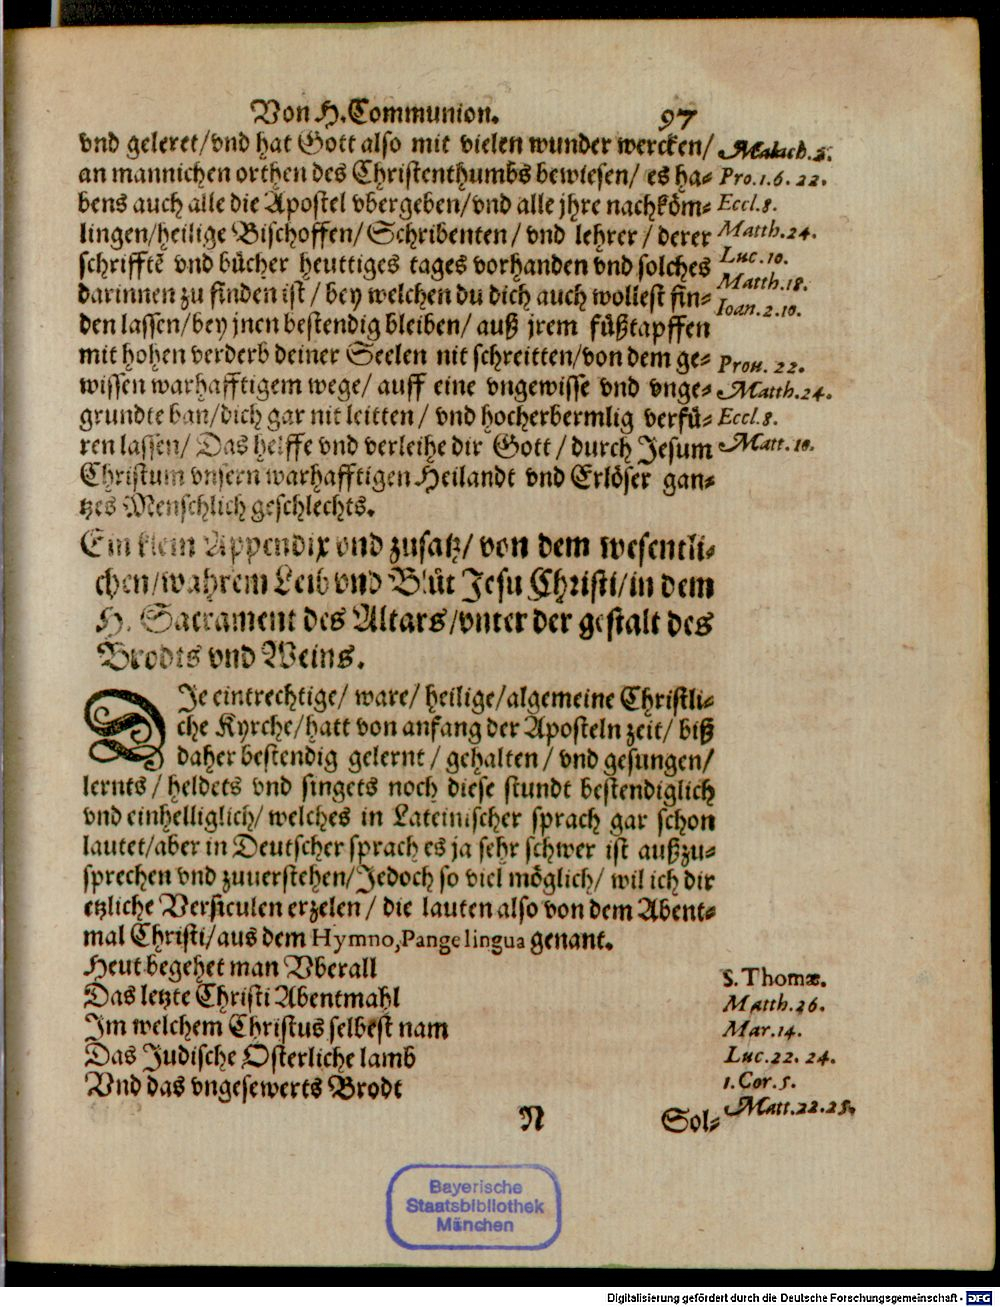 Von H. Communion. 97
vnd geleret/vnd hat Gott also mit vielen wunder wercken/
an mannichen orthen des Christenthumbs bewiesen/ es ha⸗
bens auch alle die Apostel vbergeben/vnd alle jhre nachköm⸗
lingen/heilige Bischoffen/Schribenten/ vnd lehrer/ derer
schrifftē vnd bücher heuttiges tages vorhanden vnd solches
darinnen zu finden ist/ bey welchen du dich auch wollest fin⸗
den lassen/bey jnen bestendig bleiben/ auß jrem füßtapffen
mit hohen verderb deiner Seelen nit schreitten/von dem ge⸗
wissen warhafftigem wege/ auff eine vngewisse vnd vnge⸗
grundte ban/dich gar nit leitten/ vnd hocherbermlig verfü⸗
ren lassen/ Das helffe vnd verleihe dir Gott/ durch Jesum
Christum vnsern warhafftigen Heilandt vnd Erlöser gan⸗
tzes Menschlich geschlechts.
Malach. 2.
Pro. 1. 6. 22.
Eccl. 8.
Matth. 24.
Luc. 10.
Matth. 18.
Ioan. 2. 10.
Prou. 22.
Matth. 24.
Eccl. 8.
Matt. 18.
Ein klein Appendix vnd zusatz/ von dem wesentli⸗
chen/wahrem Leib vnd Blůt Jesu Christi/in dem
H. Sacrament des Altars/vnter der gestalt des
Brodts vnd Weins.
DIe eintrechtige/ ware/ heilige/algemeine Christli⸗
che Kyrche/hatt von anfang der Aposteln zeit/ biß
daher bestendig gelernt/ gehalten/ vnd gesungen/
lernts/ heldets vnd singets noch diese stundt bestendiglich
vnd einhelliglich/ welches in Lateinischer sprach gar schon
lautet/aber in Deutscher sprach es ja sehr schwer ist außzu⸗
sprechen vnd zuuerstehen/Jedoch so viel möglich/ wil ich dir
etzliche Versiculen erzelen/ die lauten also von dem Abent⸗
mal Christi/aus dem Hymno, Pange lingua genant.
Heut begehet man Vberall
Das letzte Christi Abentmahl
Im welchem Christus selbest nam
Das Judische Osterliche lamb
Vnd das vngesewerts Brodt
S. Thomæ.
Matth. 26.
Mar. 14.
Luc. 22. 24.
1. Cor. 5.
Matt. 22. 25.
N Sol⸗
Bayerische
Staatsbibliothek
München
Digitalisierung gefördert durch die Deutsche Forschungsgemeinschaft - DFG